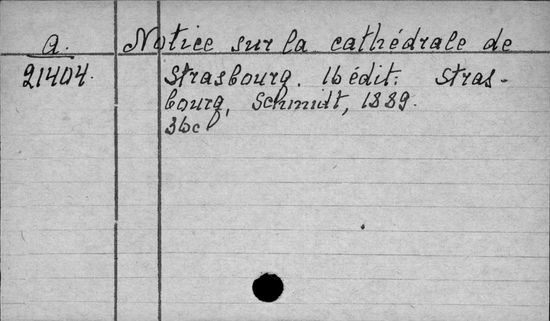 a. Notice sur la cathédrale de
21404. Strasbourg. 16 édit. Stras-
bourg, Schmidt, 1889.